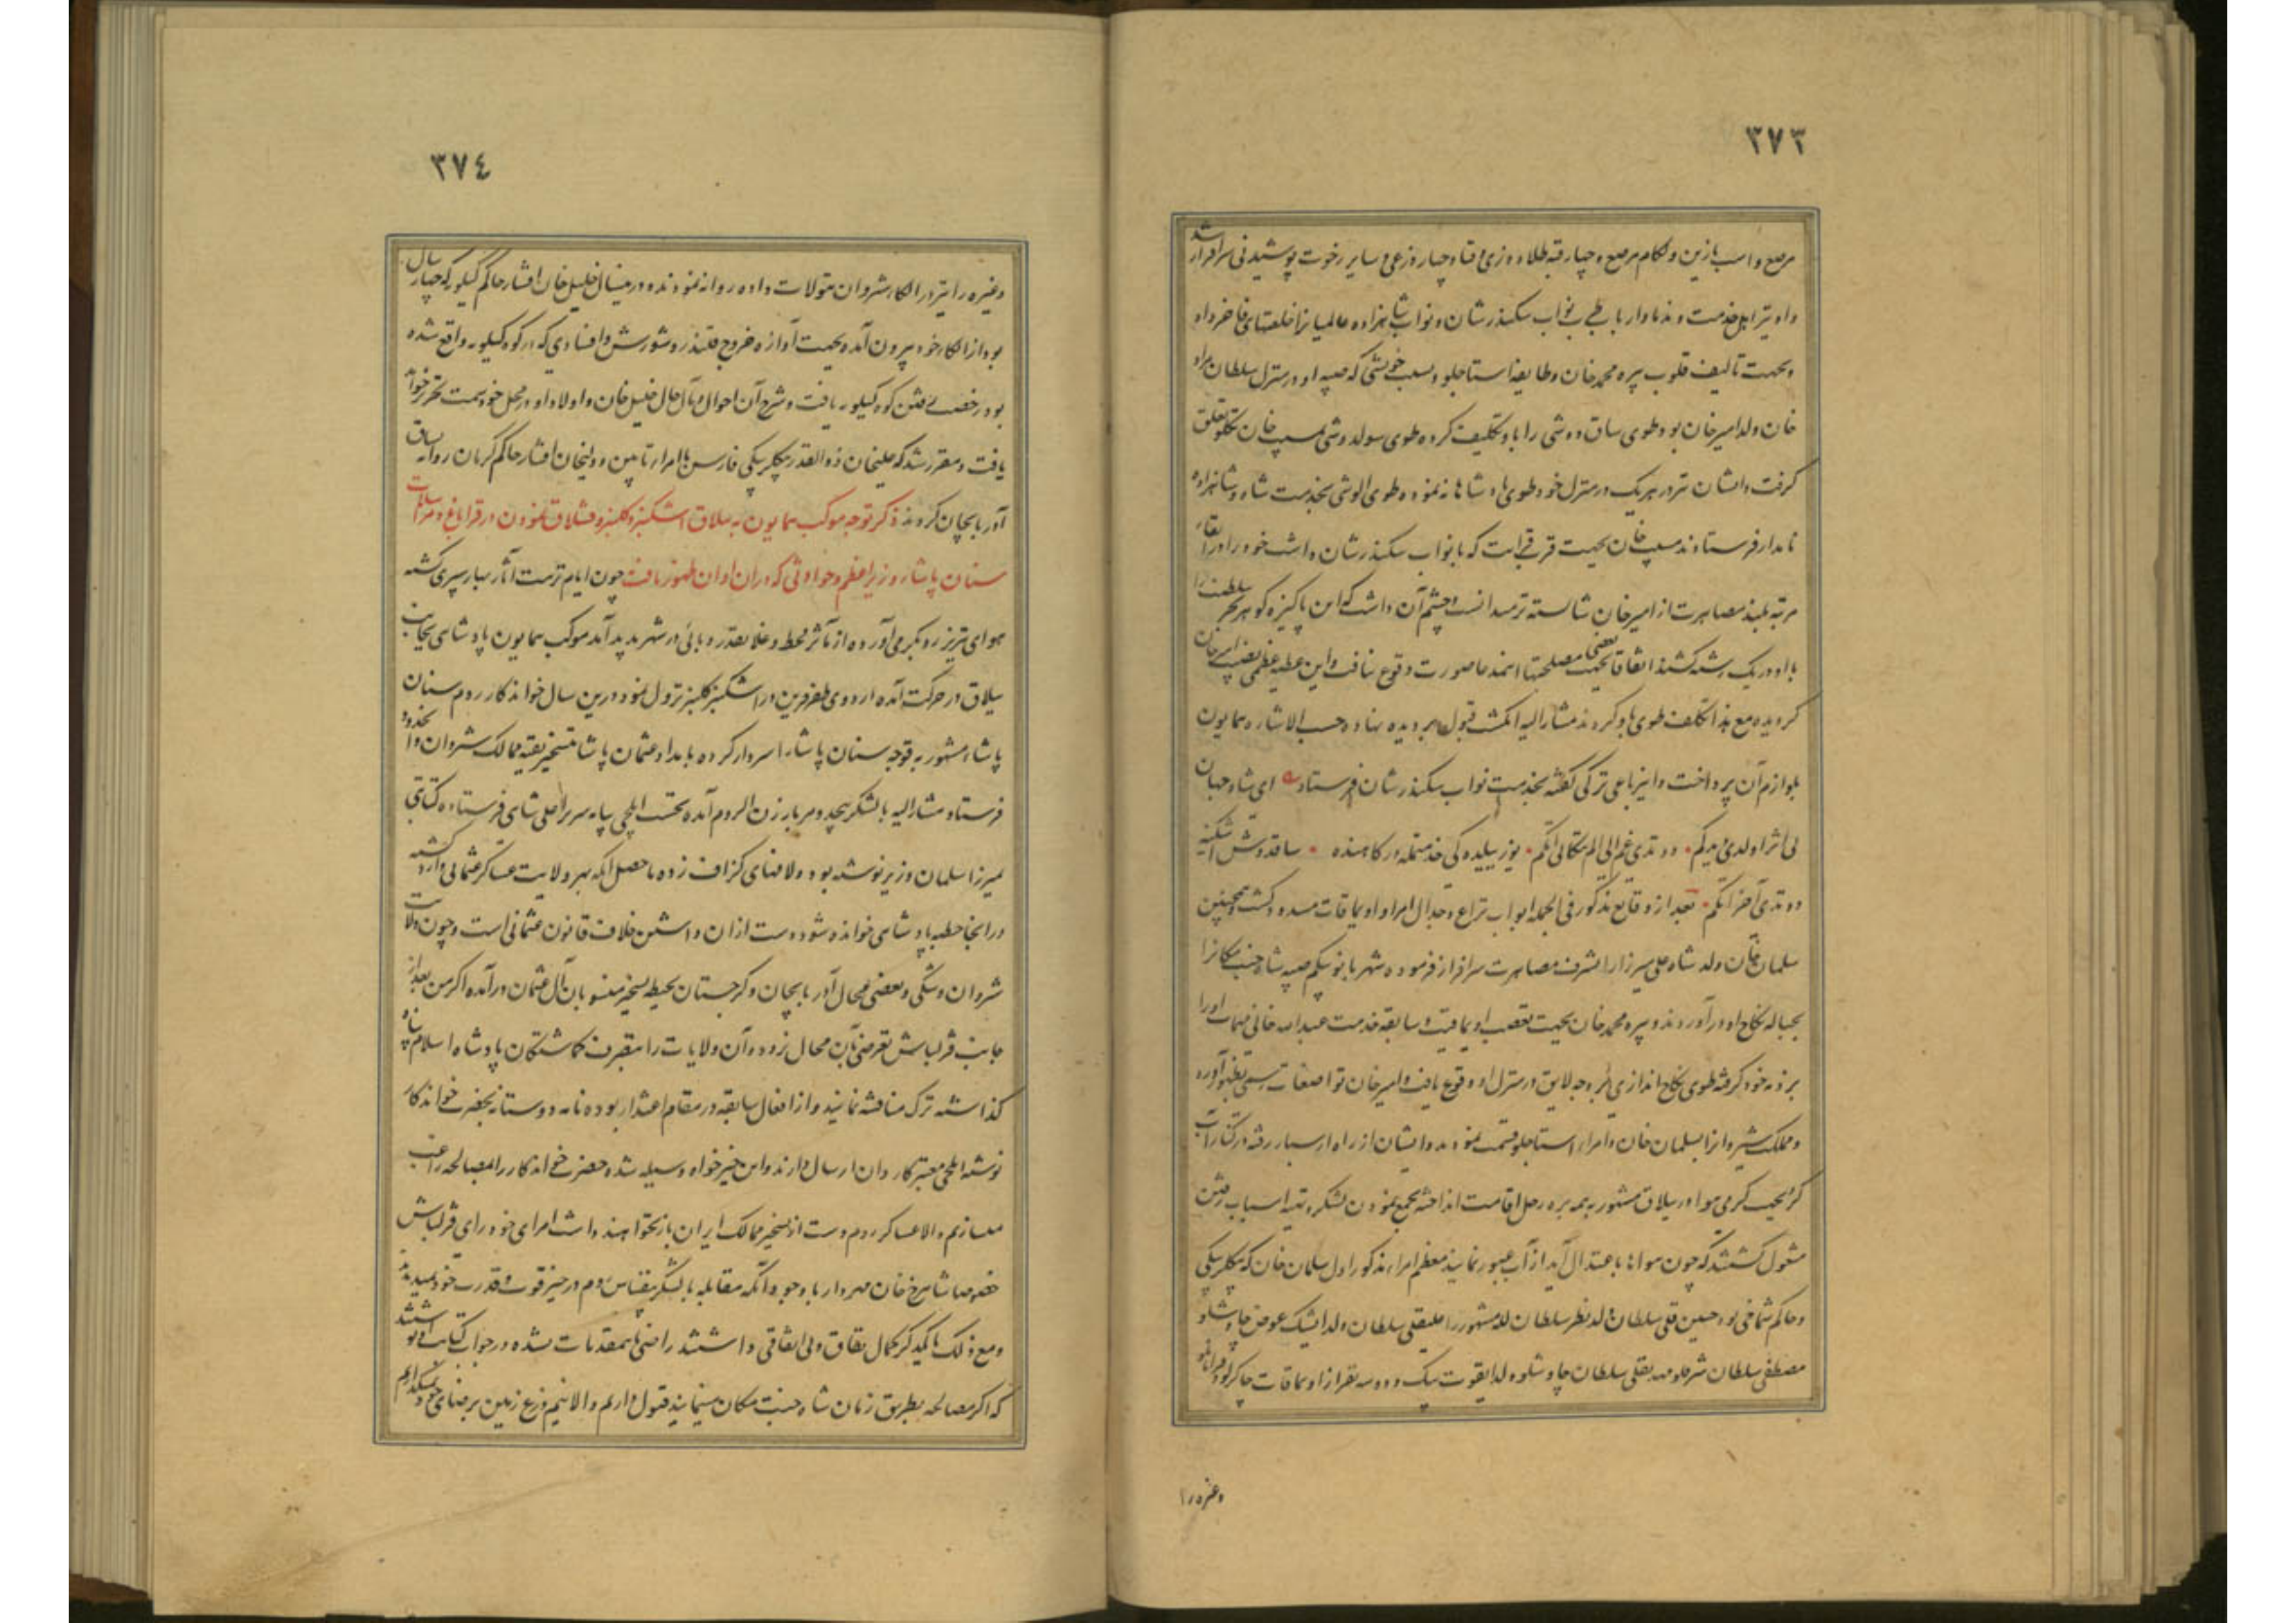 ٣٧٣
مرصع و اسب با زین و لجام مرصع و چهار قبه طلادوزی و قبا و چهار ذرعی و سایر رخوت پوشیدنی سرافراز شد
و اهل خدمت و ندما و ارباب طرب نواب سکندرشان و نواب شاهزاده عالمیانرا خلعتهای فاخر داد
و بجهت تألیف قلوب پیره محمد خان و طایفه استاجلو و بسبب خویشی که صبیه او در منزل سلطان مراد
خان ولد امیر خان بود طوی ساق دوشی را باو تکلیف کرده طوی سولدوشی بمسیب خان تکلو تعلق
گرفت و ایشان نیز در هر یک در منزل خود طوی شاهانه نموده طوی الوشی بخدمت شاه و شاهزاده
نامدار فرستادند مسیب خان بجهت قرابت که با نواب سکندرشان داشت خود را در ارتقاء
مرتبه بلند مصاهرت از امیر خان شایسته تر میدانست و چشم آن داشت که این پاکیزه گوهر بحر سلطنت را
با او در یک رشته کشند اتفاقا بجهت بعضی مصلحتها اینمدعا صورت وقوع نیافت و این عطیه عظمی نصیب امیر خان
گردیده مع هذا تکلیف طوی باو کردند مشارالیه انگشت قبول بر دیده نهاده حسب الاشاره همایون
بلوازم آن پرداخت و این رباعی ترکی گفته بخدمت نواب سکندرشان فرستاد ای شاه جهان
دوندی آخر انگم بعد از وقایع مذکور فی الجمله ابواب نزاع و جدال امرا و اویماقات مسدود گشت و همچنین
سلمان خان ولد شاه علی میرزا را بشرف مصاهرت سرافراز فرموده شهربانو بیگم صبیه شاه جنت مکانرا
بحباله نکاح او درآوردند و پیره محمد خان بجهت تعصب اویماقیت و سابقه خدمت عبدالله خانی مهمات او را
بر ذمه خود گرفته طوی نکاح اندازی بوجه لایق در منزل او وقوع یافت و امیر خان تواضعات رسمی بظهور آورده
و مملکت شیروانرا بسلمان خان و امراء استاجلو قسمت نمودند و ایشان از راه ارسبار رفته در کنار آب
کر بجهت گرمی هوا در ییلاق مشهور به همه بره رحل اقامت انداخته بجمع نمودن لشکر و تهیه اسباب رفتن
مشغول گشتند که چون هواها باعتدال آید از آب عبور نمایند معظم امراء مذکور اول سلمان خان که بیگلربیگی
و حاکم شماخی بود حسین قلی سلطان ولد نظر سلطان لله مشهور را علیقلی سلطان ولد ایشیک عوض چاوشلو
مصطفی سلطان شرفلو مهدیقلی سلطان چاوشلو ولد ایقوت بیک و دو سه نفر از اویماقات چاکرلو و قرامانلو
وغیره را
٣٧٤
وغیره را نیز در الکاء شروان تیولات داده روانه نمودند و درینسال خلیل خان افشار حاکم کیلویه که چهار سال
بود از الکاء خود بیرون آمده بجهت آوازه خروج قلندر و شورش و افسادی که در کوه کیلویه واقع شده
بود رخصت رفتن کوه کیلویه یافت و شرح آن احوال و مآل حال خلیل خان و اولاد او در محل خود سمت تحریر خواهد
یافت و مقرر شد که علیخان ذوالقدر بیگلربیگی فارس با امراء تابین و ولیخان افشار حاکم کرمان روانه یساق
آذربایجان گردند ذکر توجه موکب همایون به ییلاق اشکنبر و کلنبر و قشلاق نمودن در قراباغ و مراسلات
سنان پاشاء وزیر اعظم و حوادثی که در ان اوان ظهور یافت چون ایام نزهت آثار بهار سپری گشته
هوای تبریز رو بگرمی آورد و از تأثیر قحط و غلا بقدر وبائی در شهر پدید آمد موکب همایون پادشاهی بجانب
ییلاق در حرکت آمده اردوی ظفرقرین در اشکنبر کلنبر نزول نمود درین سال خواندکار روم سنان
پاشاء مشهور به قوجه سنان پاشا را سردار کرده بامداد عثمان پاشا بتسخیر بقیه ممالک شروان و آنحدود
فرستاد مشارالیه با لشکر بیحد و مر به ارزن الروم آمده نخست ایلچی بپایه سریر اعلی شاهی فرستاده کتابتی
بمیرزا سلمان وزیر نوشته بود و لافهای گزاف زده ماحصل آنکه بهر ولایت عساکر عثمانی وارد گشته
در انجا خطبه پادشاهی خوانده شود دست ازان داشتن خلاف قانون عثمانی است و چون ولایت
شروان و شکی و بعضی محال آذربایجان و گرجستان بحیطه تسخیر منسوبان آل عثمان درآمده اگر من بعد از
جانب قزلباش تعرضی بآن محال نرود و آن ولایات را بتصرف گماشتگان پادشاه اسلام پناه
گذاشته ترک مناقشه نمایند و از افعال سابقه در مقام اعتذار بوده نامه دوستانه بحضرت خواندکار
نوشته ایلچی معتبر کاردان ارسال دارند و این خیرخواه وسیله شده حضرت خواندکار را بمصالحه راغب
میسازیم و الا عساکر روم دست از تسخیر ممالک ایران باز نخواهند داشت امرای خودرای قزلباش
خصوصا شاهرخ خان مهردار با وجود آنکه مقابله با لشکر بیقیاس روم در حیز قوت و قدرت خود نمیدیدند
و مع ذلک با یکدیگر کمال نفاق و بی اتفاقی داشتند راضی باینمقدمات نشده در جواب کتابت او نوشتند
که اگر مصالحه بطریق زمان شاه جنت مکان مینمایند قبول داریم و الا نیم ذرع زمین برضای خود نمیگذاریم